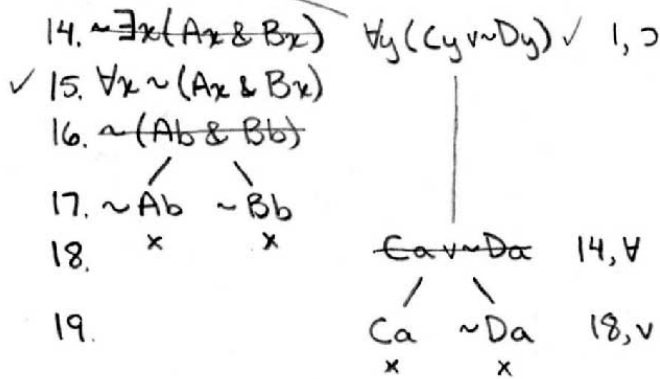 14. ~∃x(Ax & Bx) ∀y(Cy v ~Dy) ✓ 1, ⊃
✓ 15. ∀x ~ (Ax & Bx)
16. ~(Ab & Bb)
17. ~Ab ~Bb
18. x x Ca v ~Da 14, ∀
19. Ca ~Da 18, v
x x